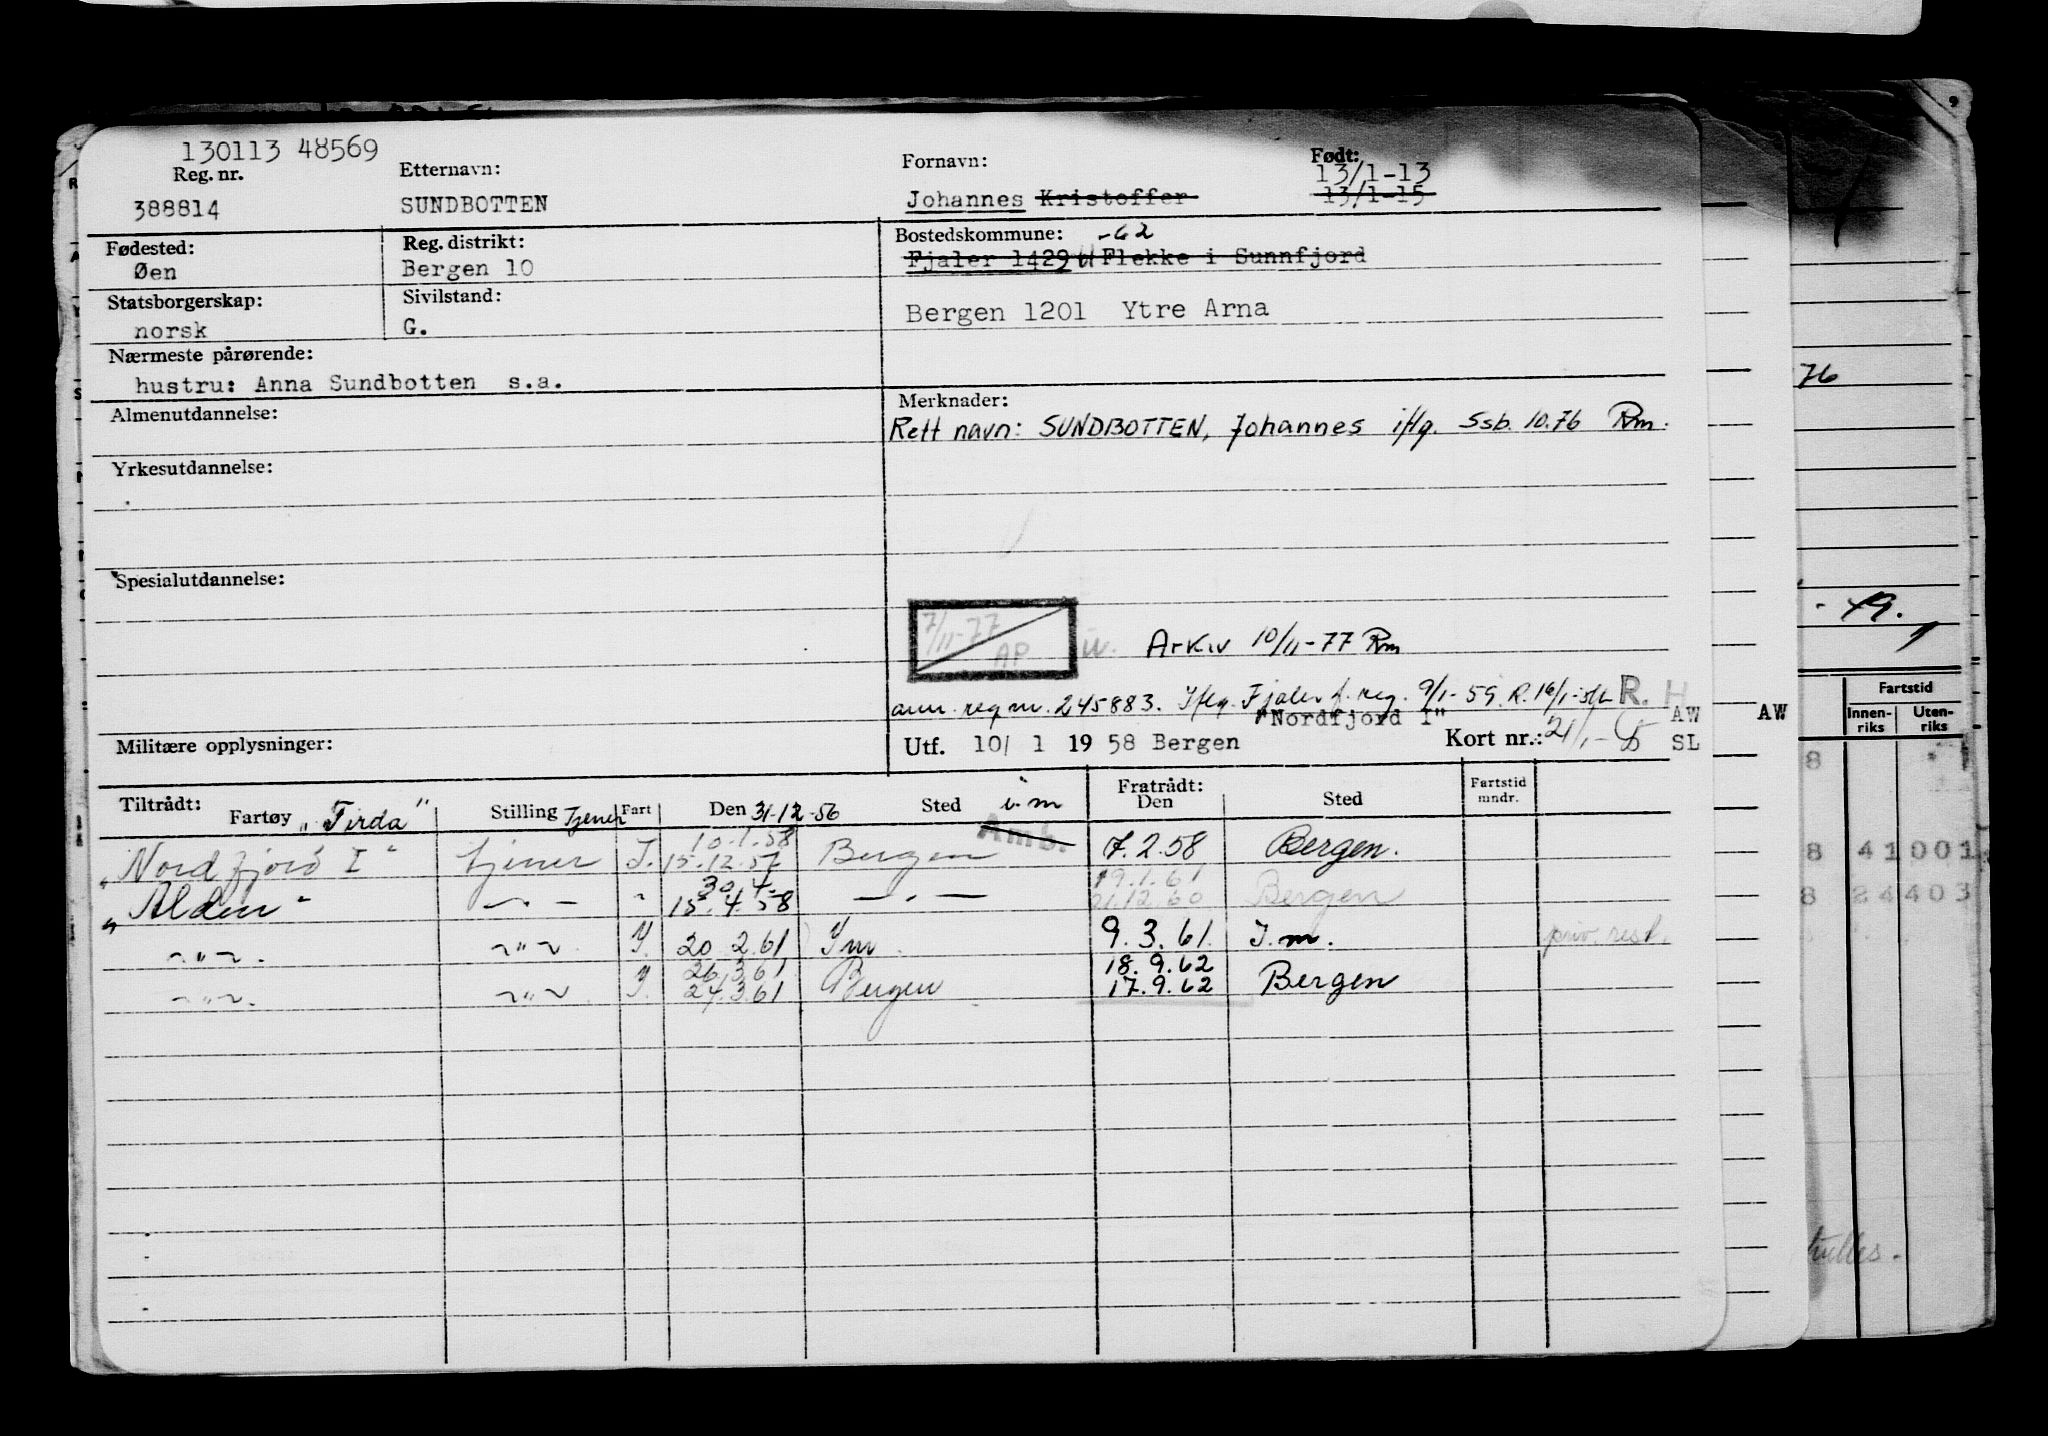 130113 48569
Reg. nr.
388814
Etternavn:
SUNDBOTTEN
Fornavn:
Johannes Kristoffer
Født:
13/1-13
13/1-15
Fødested:
Øen
Reg. distrikt:
Bergen 10
Bostedskommune: -62
Fjaler 1429 Flekke i Sunnfjord
Bergen 1201 Ytre Arna
Statsborgerskap:
norsk
Sivilstand:
G.
Nærmeste pårørende:
hustru: Anna Sundbotten s.a.
Almenutdannelse:
Merknader:
Rett navn: SUNDBOTTEN, Johannes iflg. Ssb. 10.76 Rm.
Yrkesutdannelse:
Spesialutdannelse:
7/11-77
AP
Arkiv 10/11-77 Rm
ann. reg nr. 245883. Iflg. Fjaler f. reg. 9/1-59. R. 16/1- R. H
"Nordfjord I"
AW
Militære opplysninger:
Utf. 10/ 1 19 58 Bergen
Kort nr.: 21/1-
SL
Tiltrådt:
Fartøy "Firda"
Stilling Tjener
Fart
Den 31-12-56
Sted i.m
Amb.
Fratrådt:
Den
Sted
Fartstid
mndr.
"Nord fjord I" tjener I. 10.1.58 Bergen 7.2.58 Bergen.
15.12.57
"Alden" - . - " 30.4. - . - 19.1.61
15.4.58 21.12.60 Bergen
~"~. ~"~. I. 20.2.61 I m. 9.3.61 I.m. priv. rest.
~"~. ~"~ I. 26.3.61 Bergen 18.9.62 Bergen
24.3.61 17.9.62
AW
76
-49.
Fartstid
Innen-
riks
Uten-
riks
8
8 41 001
8 24 403